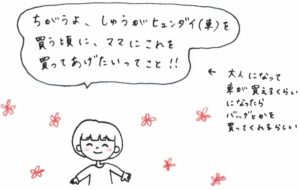 ちがうよ、しゅうがヒュンダイ(車)を
買う頃に、ママにこれを
買ってあげたいってこと!!
← 大人になって
車が買えるくらい
になったら
バッグとかを
買ってくれるらしい